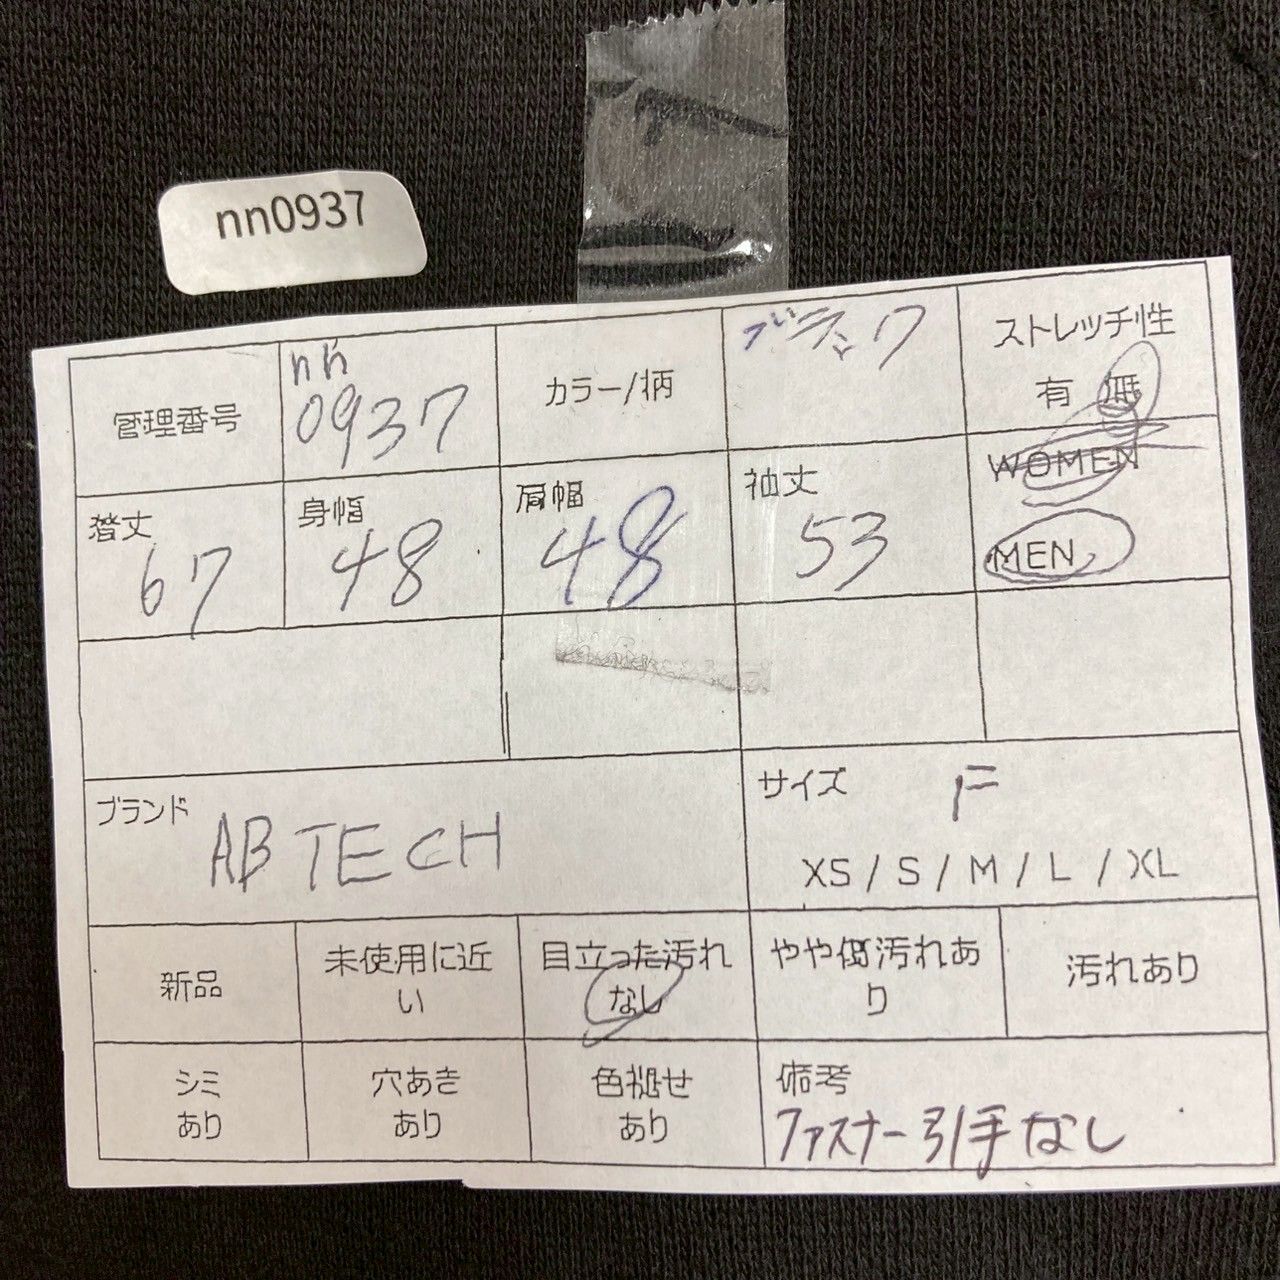 nn0937
管理番号
nn
0937
カラー/柄
ブラック
ストレッチ性
有 無
着丈
67
身幅
48
肩幅
48
袖丈
53
WOMEN
MEN
ブランド
AB TECH
サイズ
F
XS / S / M / L / XL
新品
未使用に近
い
目立った汚れ
なし
やや傷汚れあ
り
汚れあり
シミ
あり
穴あき
あり
色褪せ
あり
備考
ファスナー引手なし